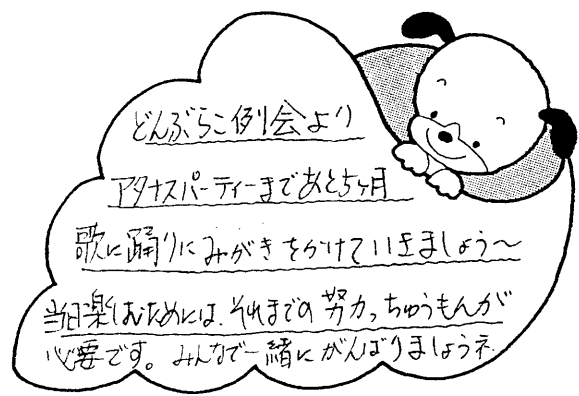 どんぶらこ例会より
アタナスパーティーまであと5ヶ月
歌に踊りにみがきをかけていきましょう〜
当日楽しむためには、それまでの努力っちゅうもんが
必要です。みんなで一緒にがんばりましょうネ.